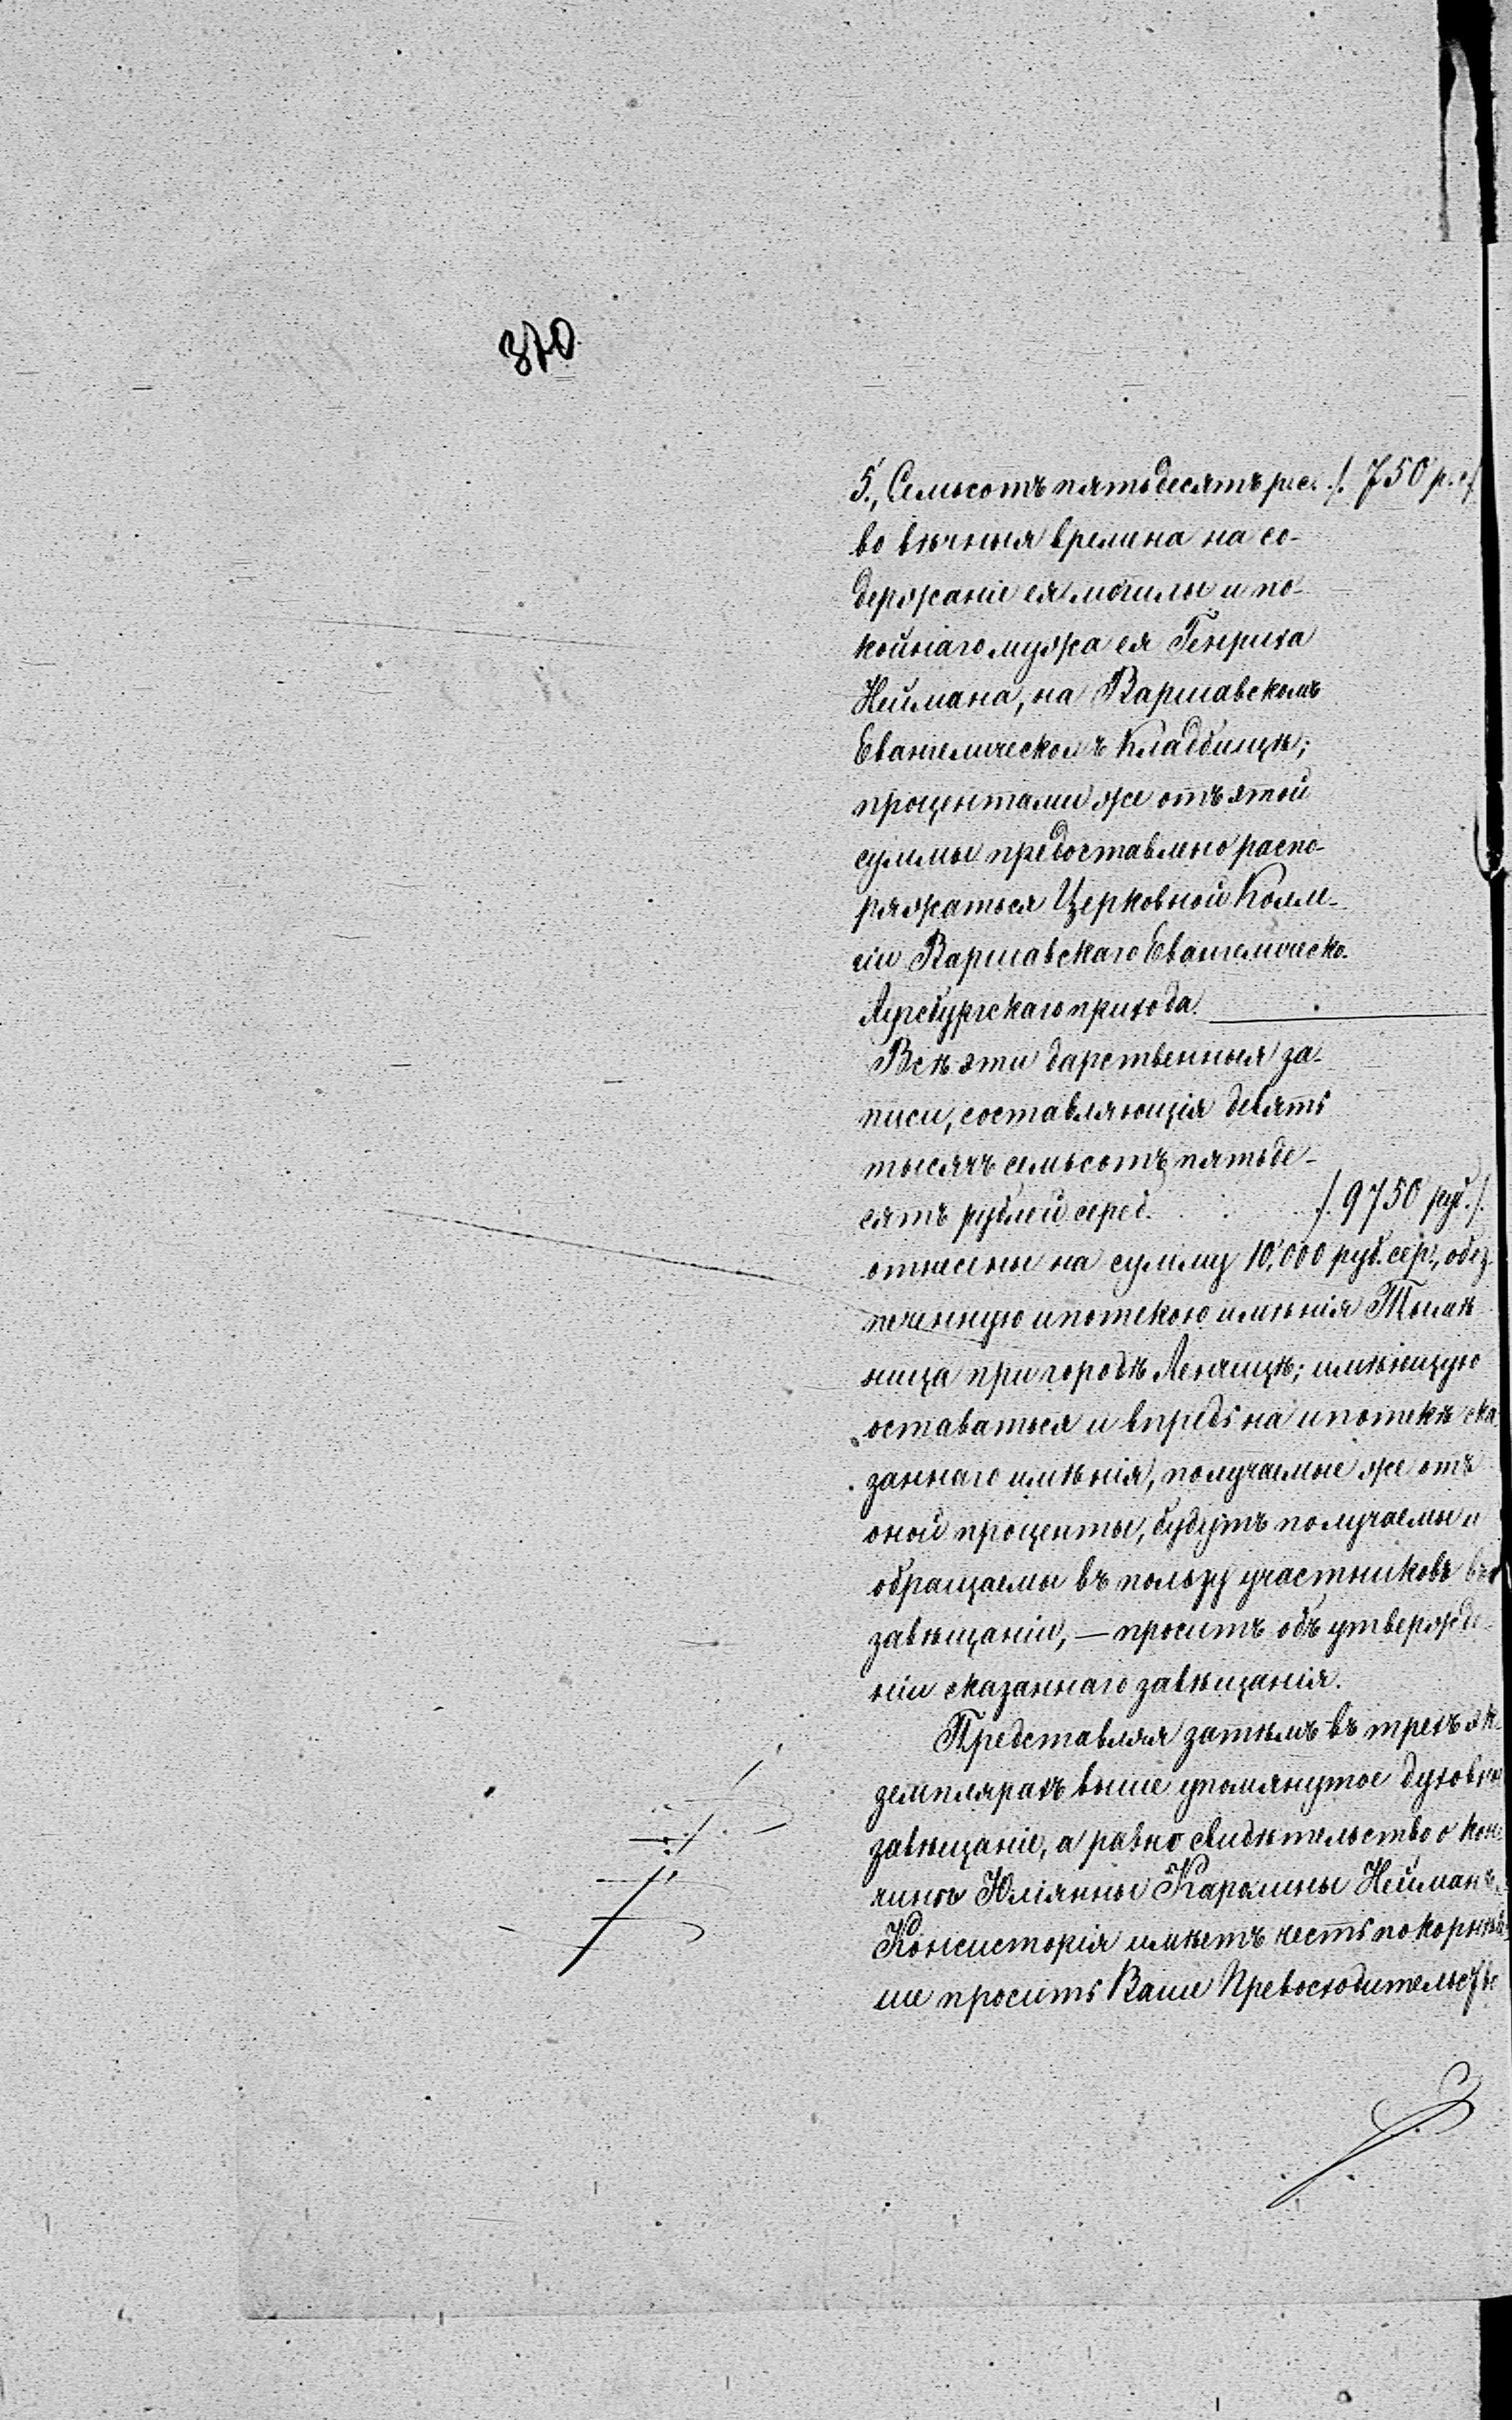 370
5., Семьсотъ пятьдесятъ р.с. /. 750 р. с/
во вѣчныя времена на со-
держаніе ея могилы и по-
койнаго мужа ея Генриха
Неймана, на Варшавскомъ
Евангелическомъ Кладбищѣ;
процентами же отъ этой
суммы предоставлено распо-
ряжаться Церковной Колле-
гіи Варшавскаго Евангелическо-
Аугсбургскаго прихода.
Всѣ эти дарственныя за-
писи, составляющія девять
тысячъ семьсотъ пятьде-
сятъ рублей сереб. . . . /. 9750 руб./.
отнесены на сумму 10,000 руб. сер., обез-
печенную ипотекою имѣнія
ница при городѣ Ленчицѣ; имѣющую
оставаться и впредь на ипотекѣ ска-
заннаго имѣнія, получаемые же отъ
оной проценты, будутъ получаемы и
обращаемы въ пользу участниковъ въ
завѣщаніи, — проситъ объ утвержде-
ніи сказаннаго завѣщанія.
Представляя затѣмъ въ трехъ эк-
земплярахъ выше упомянутое духовное
завѣщаніе, а равно свидѣтельство о кон-
чинѣ Юліянны Каролины Нейманъ,
Консисторія имѣетъ честь покорнѣй-
ше просить Ваше Превосходительство